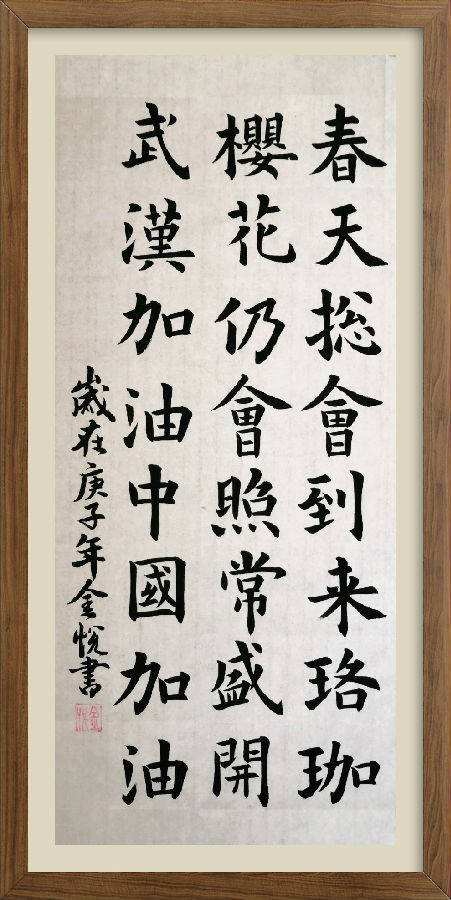 春天揔會到来珞珈
櫻花仍會照常盛開
武漢加油中國加油
歲在庚子年金悅書